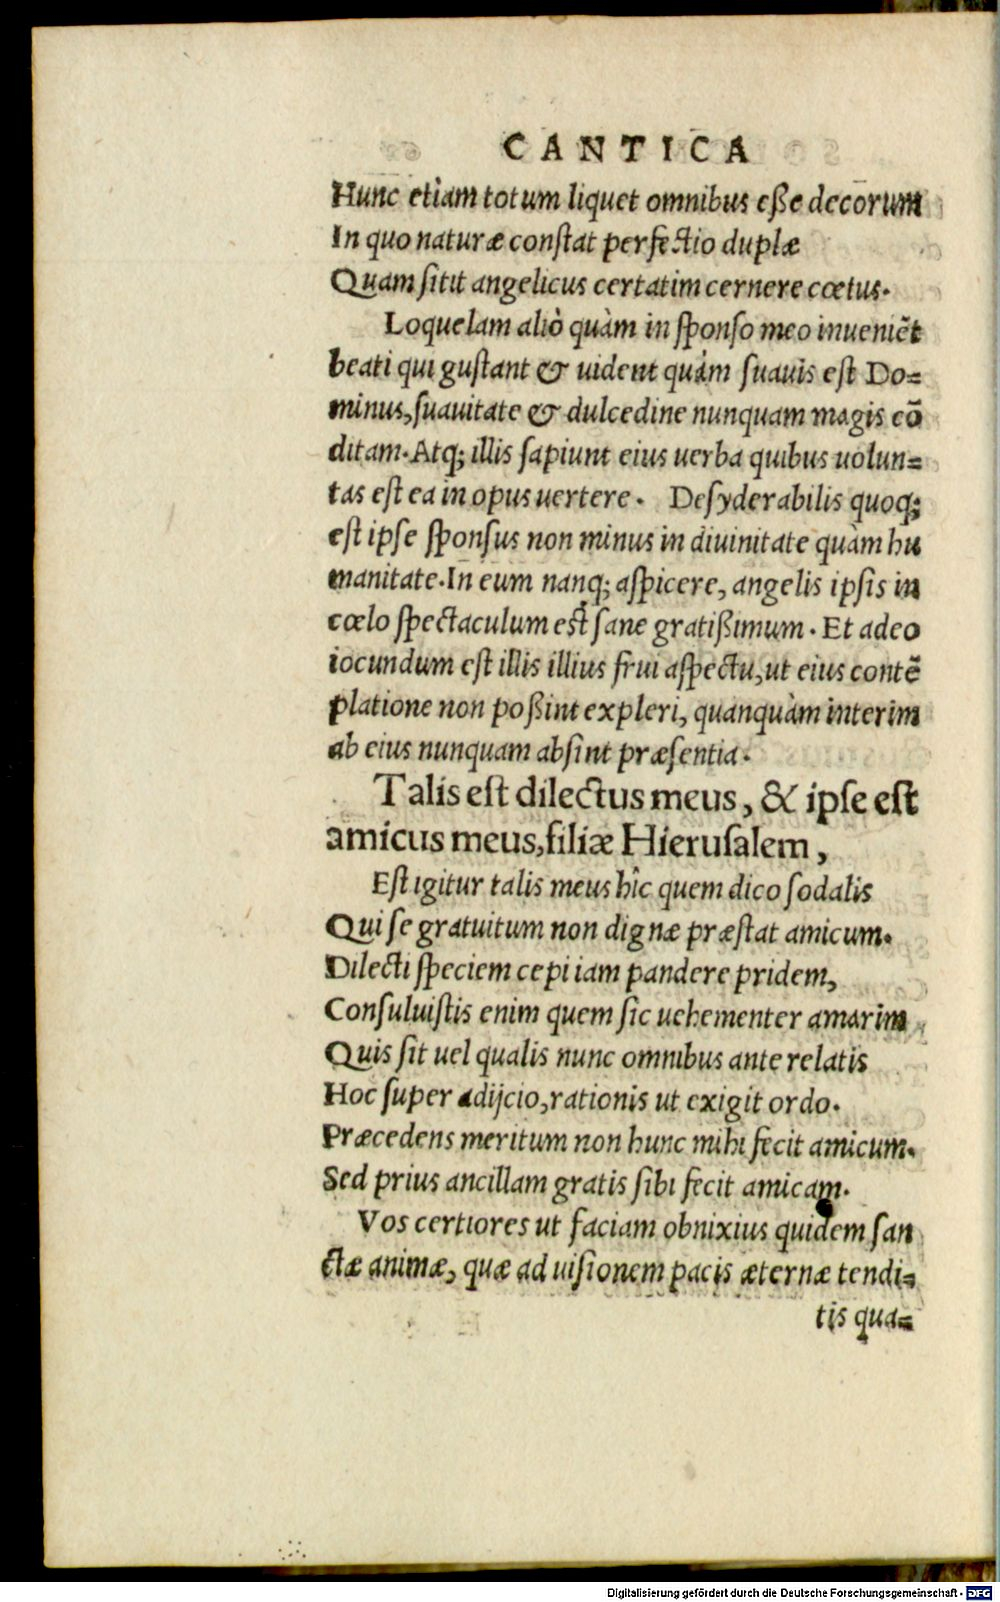 CANTICA
Hunc etiam totum liquet omnibus eße decorum
In quo naturæ constat perfectio duplæ
Quam sitit angelicus certatim cernere cœtus.
Loquelam aliò quàm in sponso meo inueniẽt
beati qui gustant & uident quàm suauis est Do=
minus, suauitate & dulcedine nunquam magis cõ
ditam. Atq; illis sapiunt eius uerba quibus uolun=
tas est ea in opus uertere. Desyderabilis quoq;
est ipse sponsus non minus in diuinitate quàm hu
manitate. In eum nanq; aspicere, angelis ipsis in
cœlo spectaculum est sane gratißimum. Et adeo
iocundum est illis illius frui aspectu, ut eius contẽ
platione non poßint expleri, quanquàm interim
ab eius nunquam absint præsentia.
Talis est dilectus meus, & ipse est
amicus meus, filiæ Hierusalem,
Est igitur talis meus hîc quem dico sodalis
Qui se gratuitum non dignæ præstat amicum.
Dilecti speciem cepi iam pandere pridem,
Consuluistis enim quem sic uehementer amarim
Quis sit uel qualis nunc omnibus ante relatis
Hoc super adijcio, rationis ut exigit ordo.
Præcedens meritum non hunc mihi fecit amicum.
Sed prius ancillam gratis sibi fecit amicam.
Vos certiores ut faciam obnixius quidem san
ctæ animæ, quæ ad uisionem pacis æternæ tendi=
tis qua=
Digitalisierung gefördert durch die Deutsche Forschungsgemeinschaft - DFG